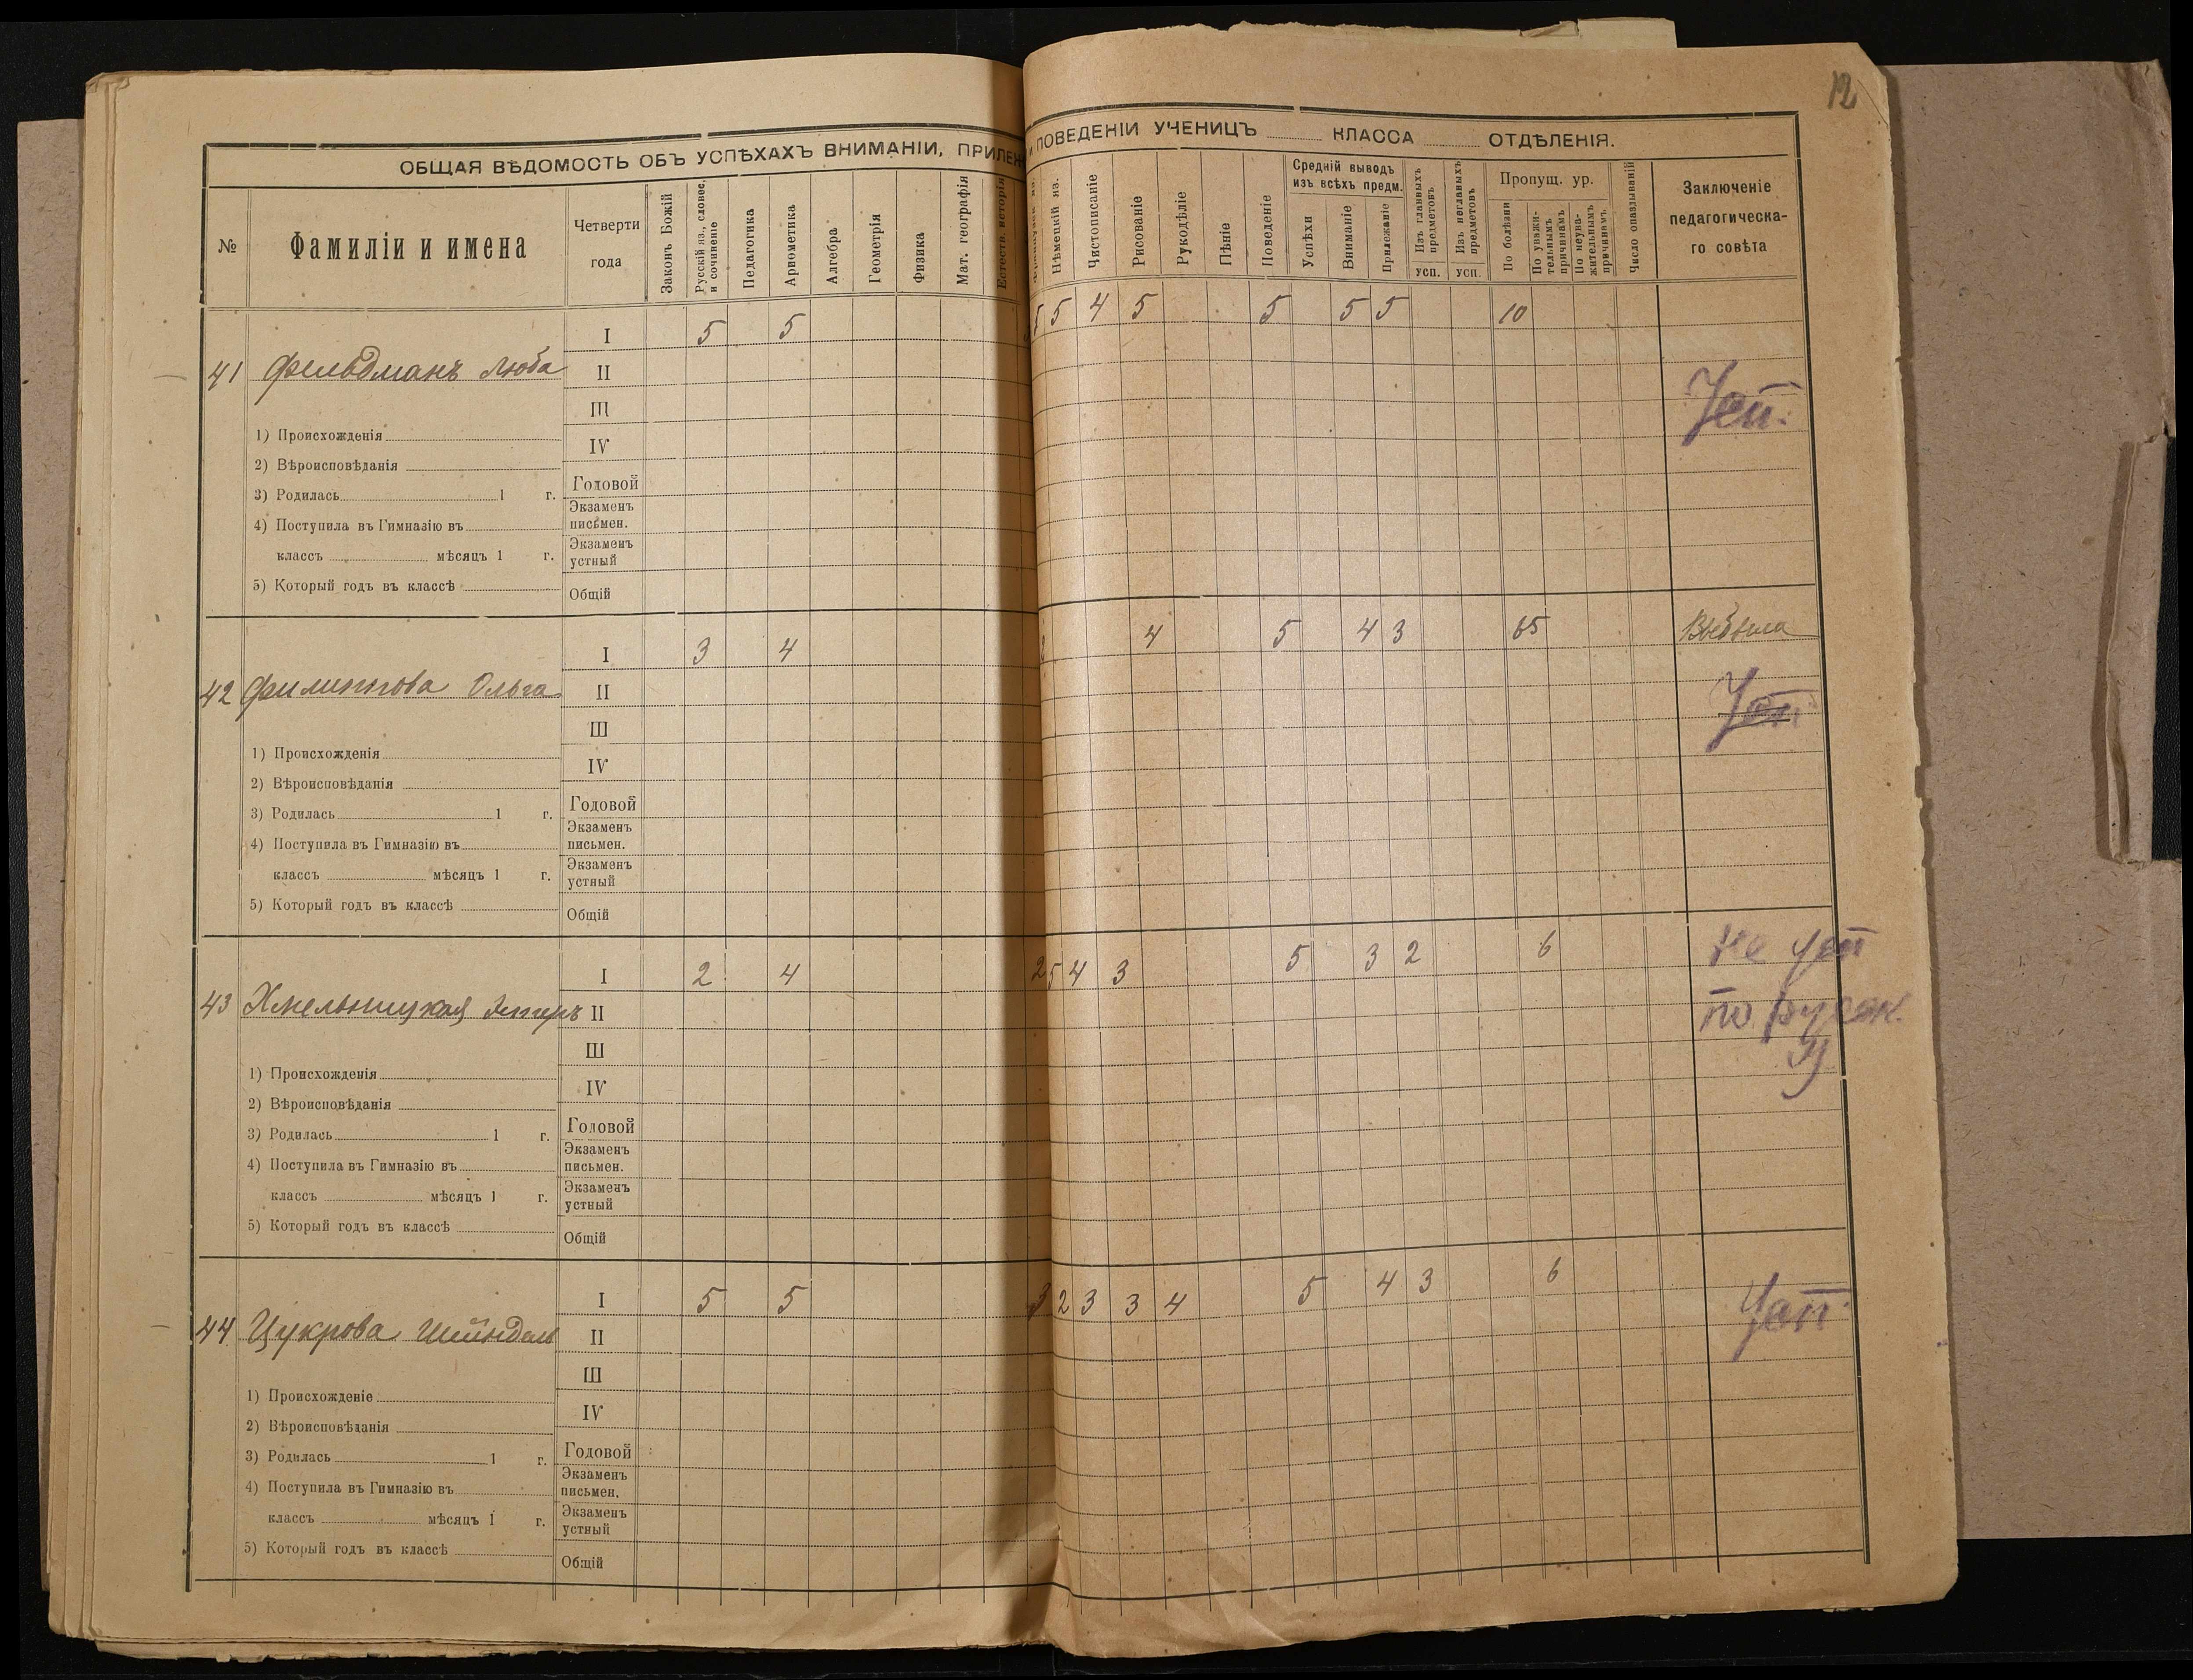 12
ОБЩАЯ ВѢДОМОСТЬ ОБЪ УСПѢХАХЪ ВНИМАНІИ, ПРИЛЕЖ
И ПОВЕДЕНІИ УЧЕНИЦЪ КЛАССА ОТДѢЛЕНІЯ.
№
Фамиліи и имена
Четверти года
Законъ Божій
Русскій яз., словес. и сочиненіе
Педагогика
Арѳометика
Алгебра
Геометрія
Физика
Мат. географія
Естеств. исторія
Нѣмецкій яз.
Чистописаніе
Рисованіе
Рукодѣліе
Пѣніе
Поведеніе
Средній выводъ изъ всѣхъ предм.
Успѣхи
Вниманіе
Прилежаніе
Изъ главныхъ предметовъ
усп.
Изъ неглавныхъ предметовъ
усп.
Пропущ. ур.
По болѣзни
По уважительнымъ причинамъ
По неуважительнымъ причинамъ
Число опаздываній
Заключеніе педагогическа-го совѣта
41 Фельдманъ Люба
I 5 5 5 5 4 5 5 5 5 10
II
III
IV
Годовой
Экзаменъ письмен.
Экзаменъ устный
Общій
Усп.
1) Происхожденія
2) Вѣроисповѣданія
3) Родилась 1 г.
4) Поступила въ Гимназію въ
классъ мѣсяцъ 1 г.
5) Который годъ въ классѣ
42 Филиппова Ольга
I 3 4 2 4 5 4 3 65 Выбыла
II
III
IV
Годовой
Экзаменъ письмен.
Экзаменъ устный
Общій
Усп
1) Происхожденія
2) Вѣроисповѣданія
3) Родилась 1 г.
4) Поступила въ Гимназію въ
классъ мѣсяцъ 1 г.
5) Который годъ въ классѣ
43 Хмельницкая Эстеръ
I 2 4 2 5 4 3 5 3 2 6
II
III
IV
Годовой
Экзаменъ письмен.
Экзаменъ устный
Общій
Не усп
по русск.
я
1) Происхожденія
2) Вѣроисповѣданія
3) Родилась 1 г.
4) Поступила въ Гимназію въ
классъ мѣсяцъ 1 г.
5) Который годъ въ классѣ
44 Цукрова Шейндель
I 5 5 3 2 3 3 4 5 4 3 6
II
III
IV
Годовой
Экзаменъ письмен.
Экзаменъ устный
Общій
Усп.
1) Происхожденіе
2) Вѣроисповѣданія
3) Родилась 1 г.
4) Поступила въ Гимназію въ
классъ мѣсяцъ 1 г.
5) Который годъ въ классѣ